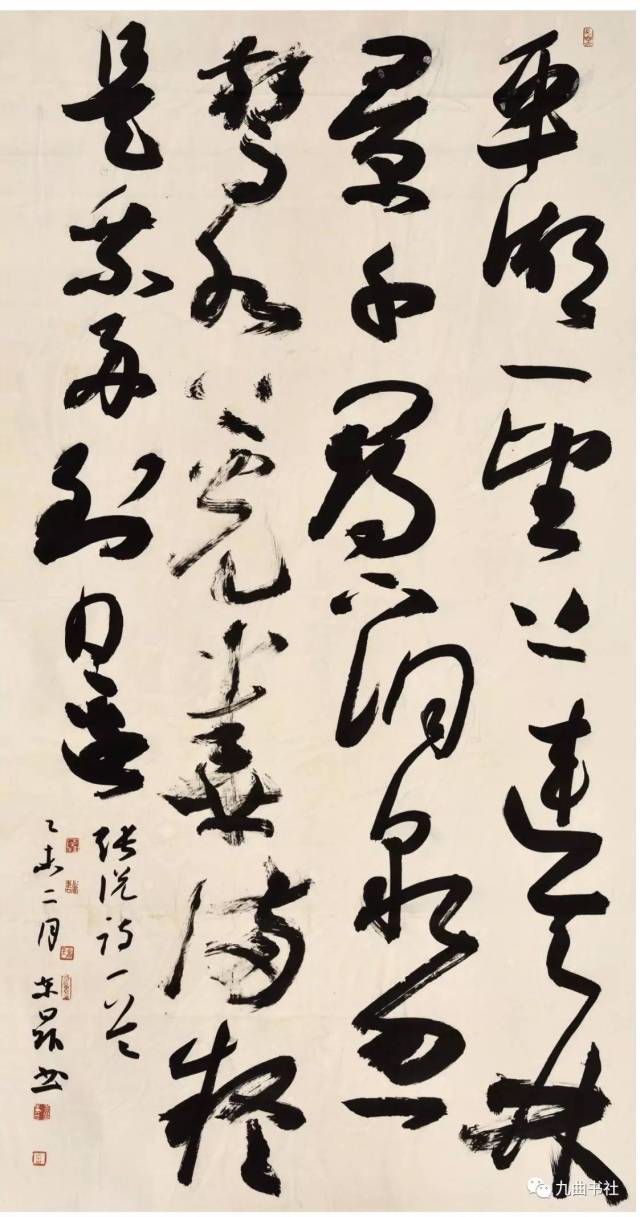 平湖一望上連天林
景千尋下洞泉忽
驚水上光華滿疑
是乘舟到日邊
張說詩一首
乙未二月 書
九曲书社